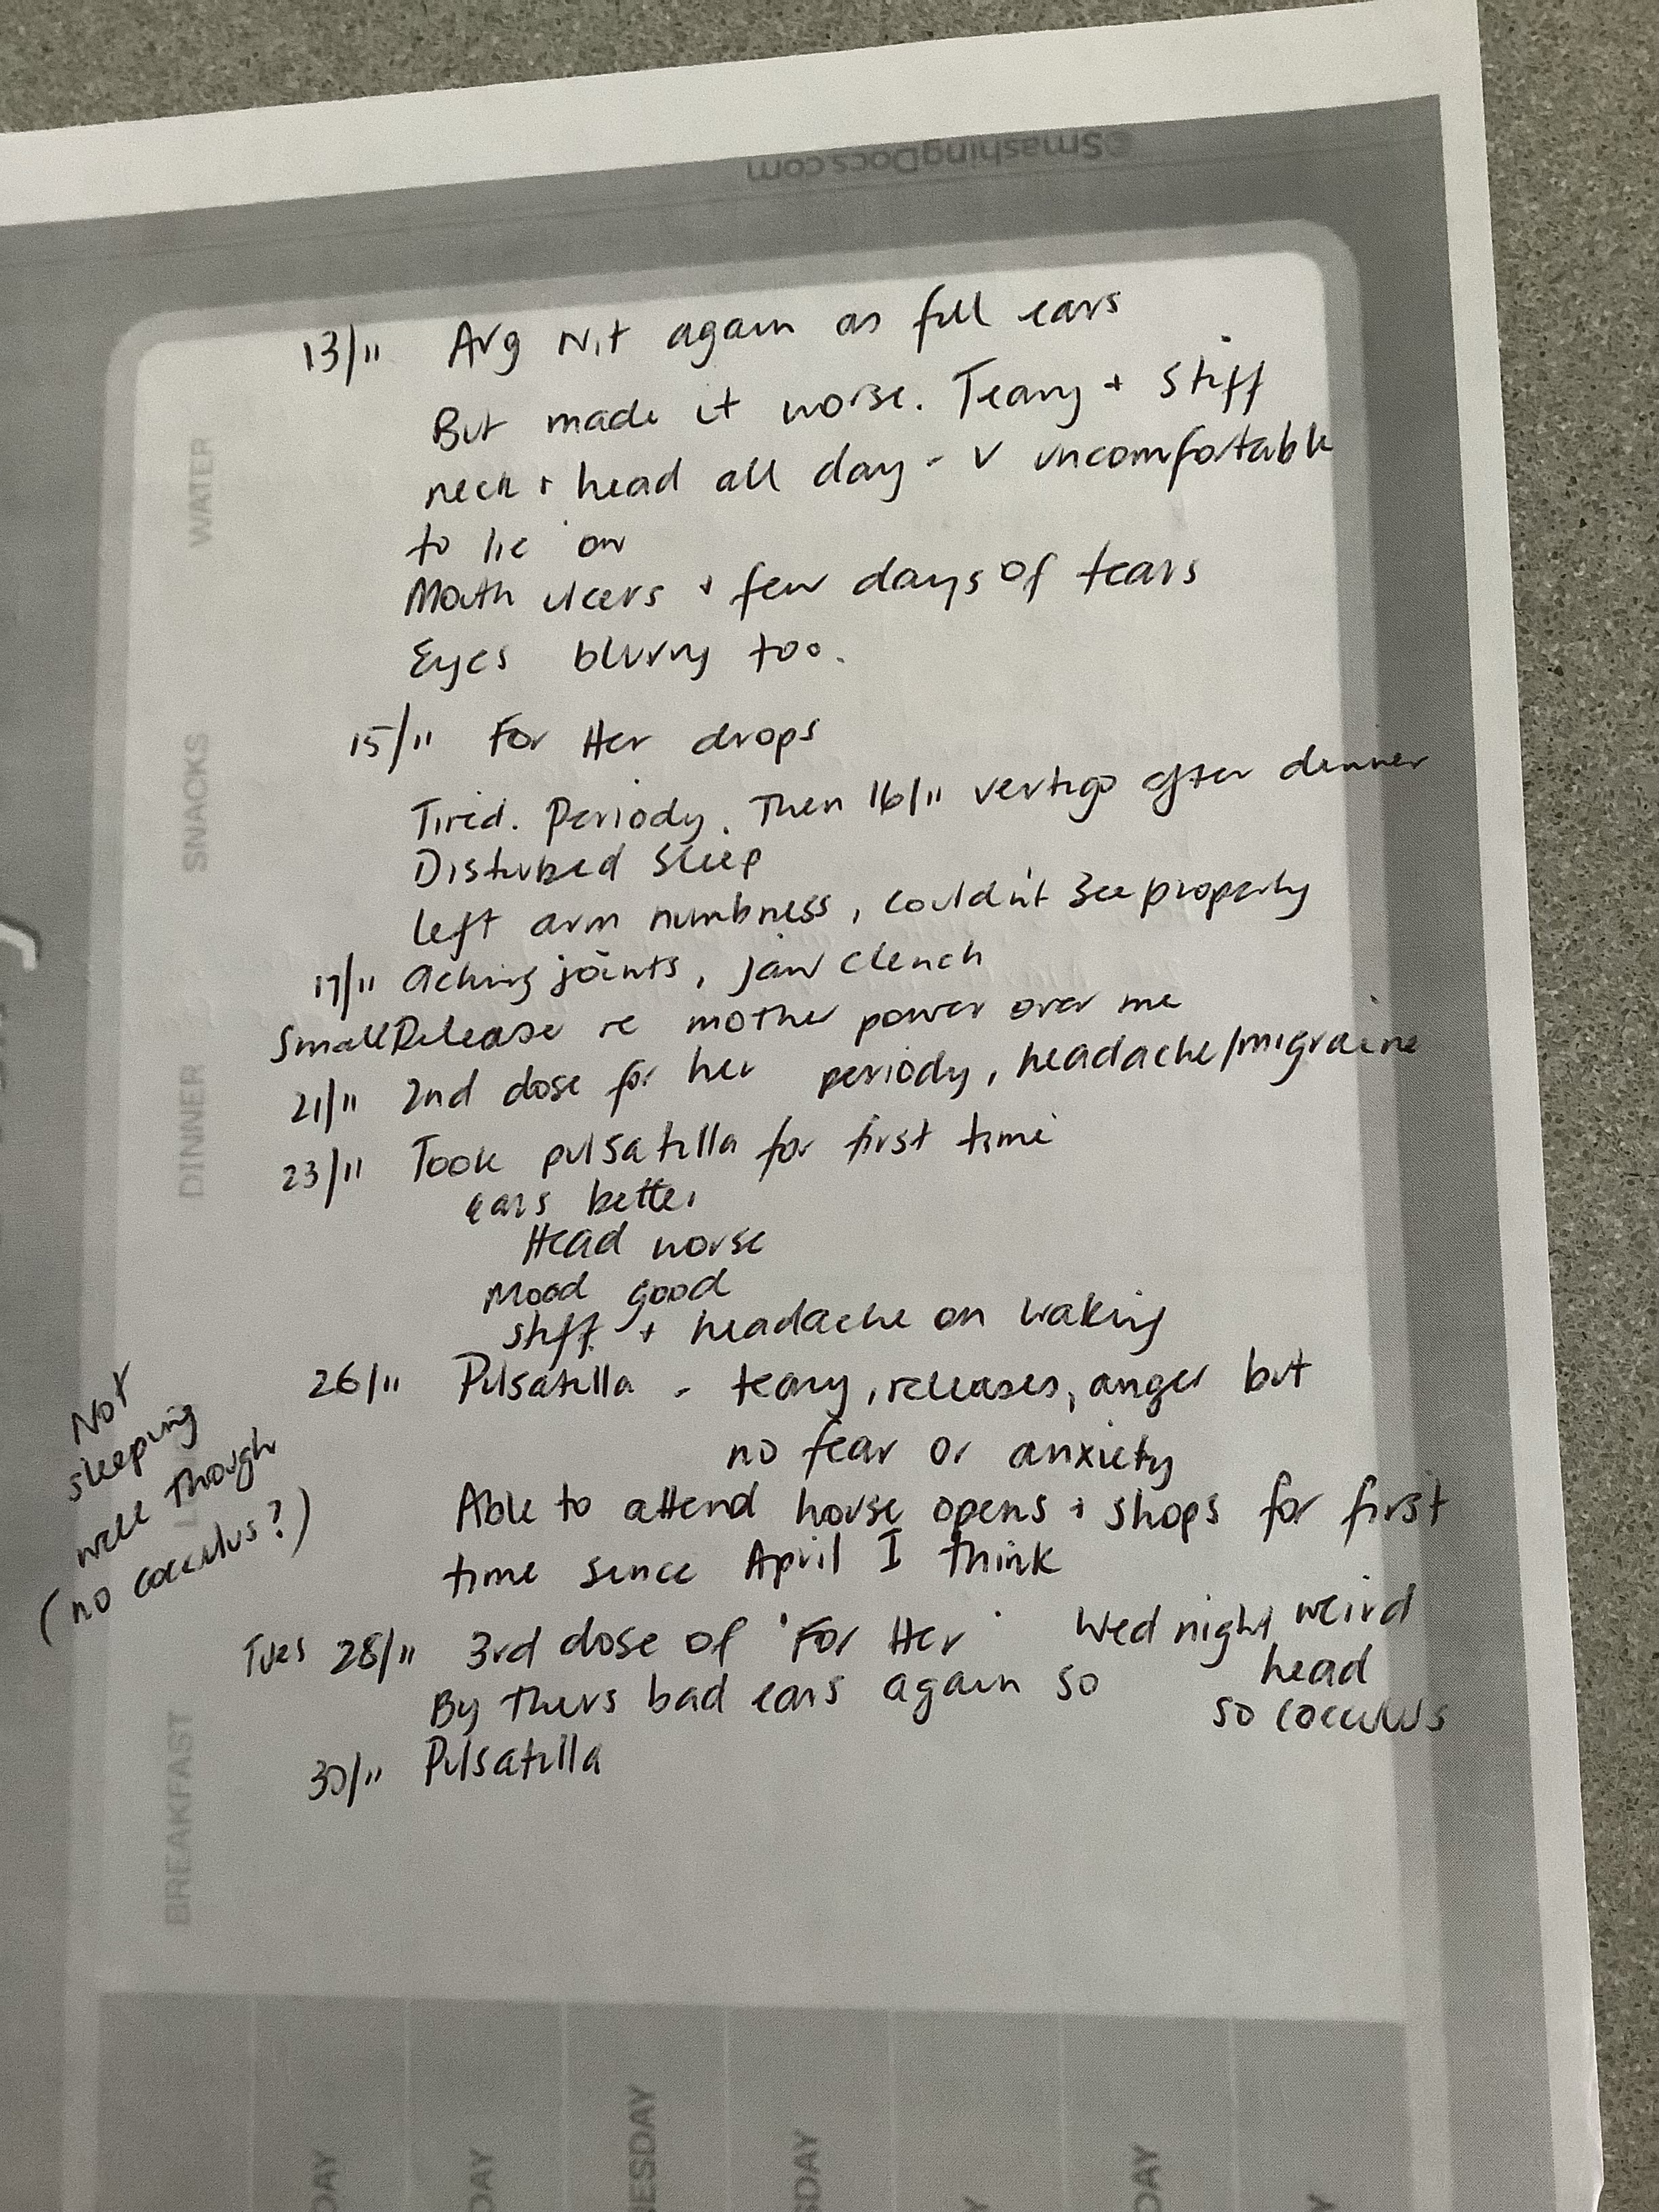 ©SmashingDocs.com
13/11 Arg Nit again as full ears
But made it worse. Teary + stiff
neck + head all day - v uncomfortable
to lie on
Mouth ulcers + few days of tears
Eyes blurry too.
15/11 For Her drops
Tired. Periody. Then 16/11 vertigo after dinner
Disturbed sleep
left arm numbness, couldn't see properly
17/11 Aching joints, jaw clench
Small Release re mother power over me
21/11 2nd dose for her periody, headache/migraine
23/11 Took pulsatilla for first time
ears better
Head worse
Mood good
stiff + headache on waking
26/11 Pulsatilla - teary, releases, anger but
no fear or anxiety
Able to attend house opens + shops for first
time since April I think
Not
sleeping
well though
(no cocculus?)
Tues 28/11 3rd dose of 'For Her' Wed night weird
head
so cocculus
By thurs bad ears again so
30/11 Pulsatilla
WATER
SNACKS
DINNER
BREAKFAST
DAY
DAY
NESDAY
SDAY
Y
DAY
Y